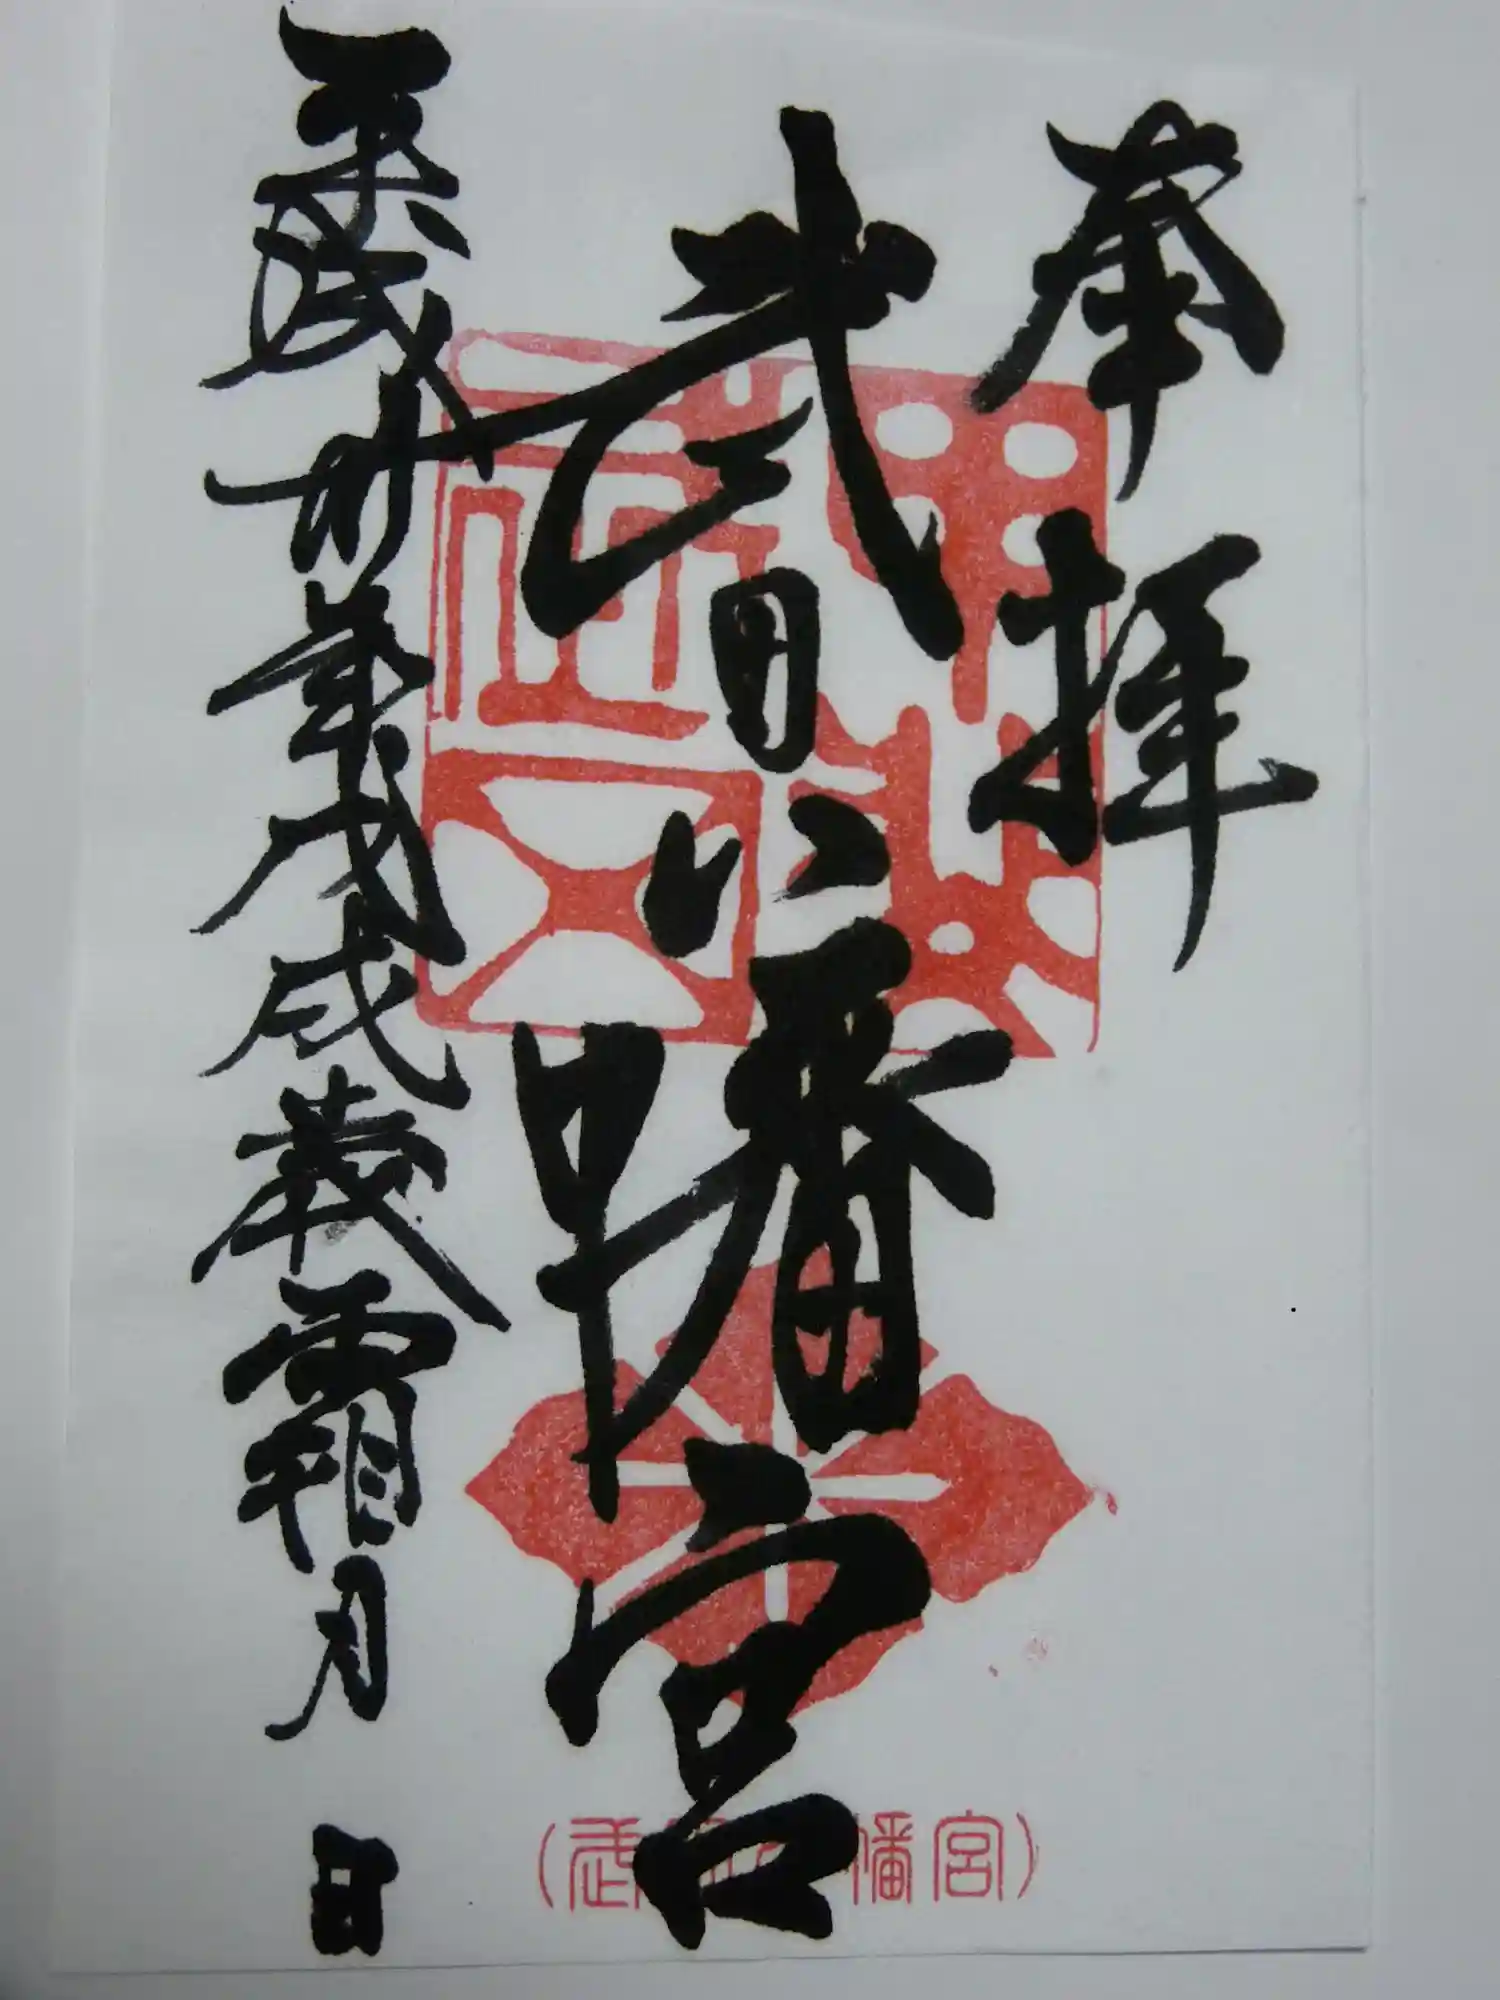 奉拝
武田八幡宮
平成卅年戊戌歳霜月 日
（武田八幡宮）